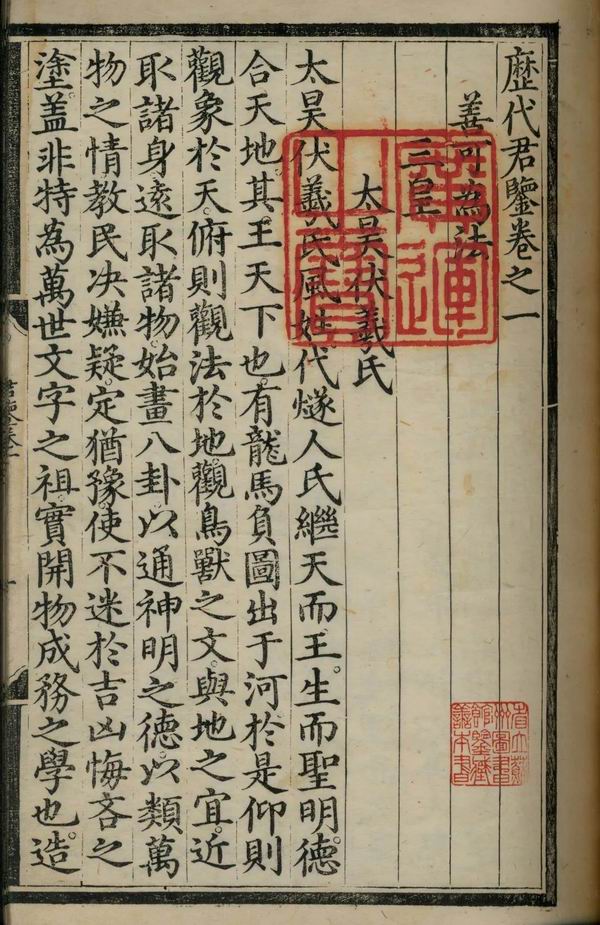 歷代君鑒卷之一
善可為法
三皇
太昊伏羲氏
太昊伏羲氏風姓代燧人氏繼天而王。生而聖明。德
合天地。其王天下也。有龍馬負圖出于河於是仰則
觀象於天。俯則觀法於地。觀鳥獸之文。與地之宜。近
取諸身。遠取諸物。始畫八卦。以通神明之德。以類萬
物之情。教民决嫌疑。定猶豫。使不迷於吉凶悔吝之
塗。盖非特為萬世文字之祖。實開物成務之學也。造
廣運之寶